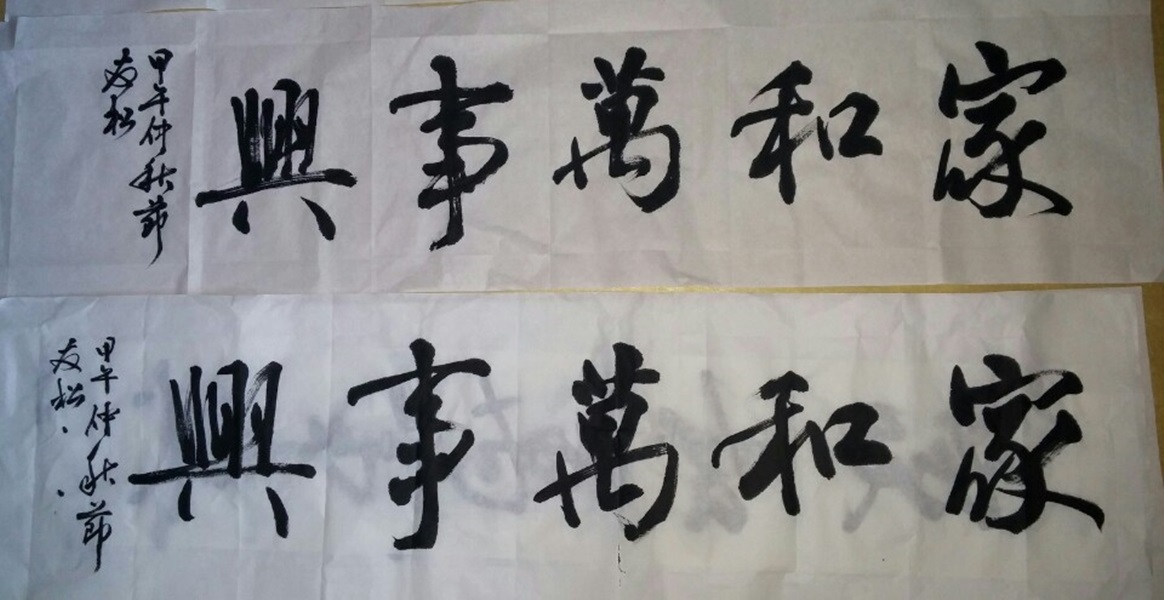 家和萬事興
甲午仲秋節
友松
家和萬事興
甲午仲秋節
友松